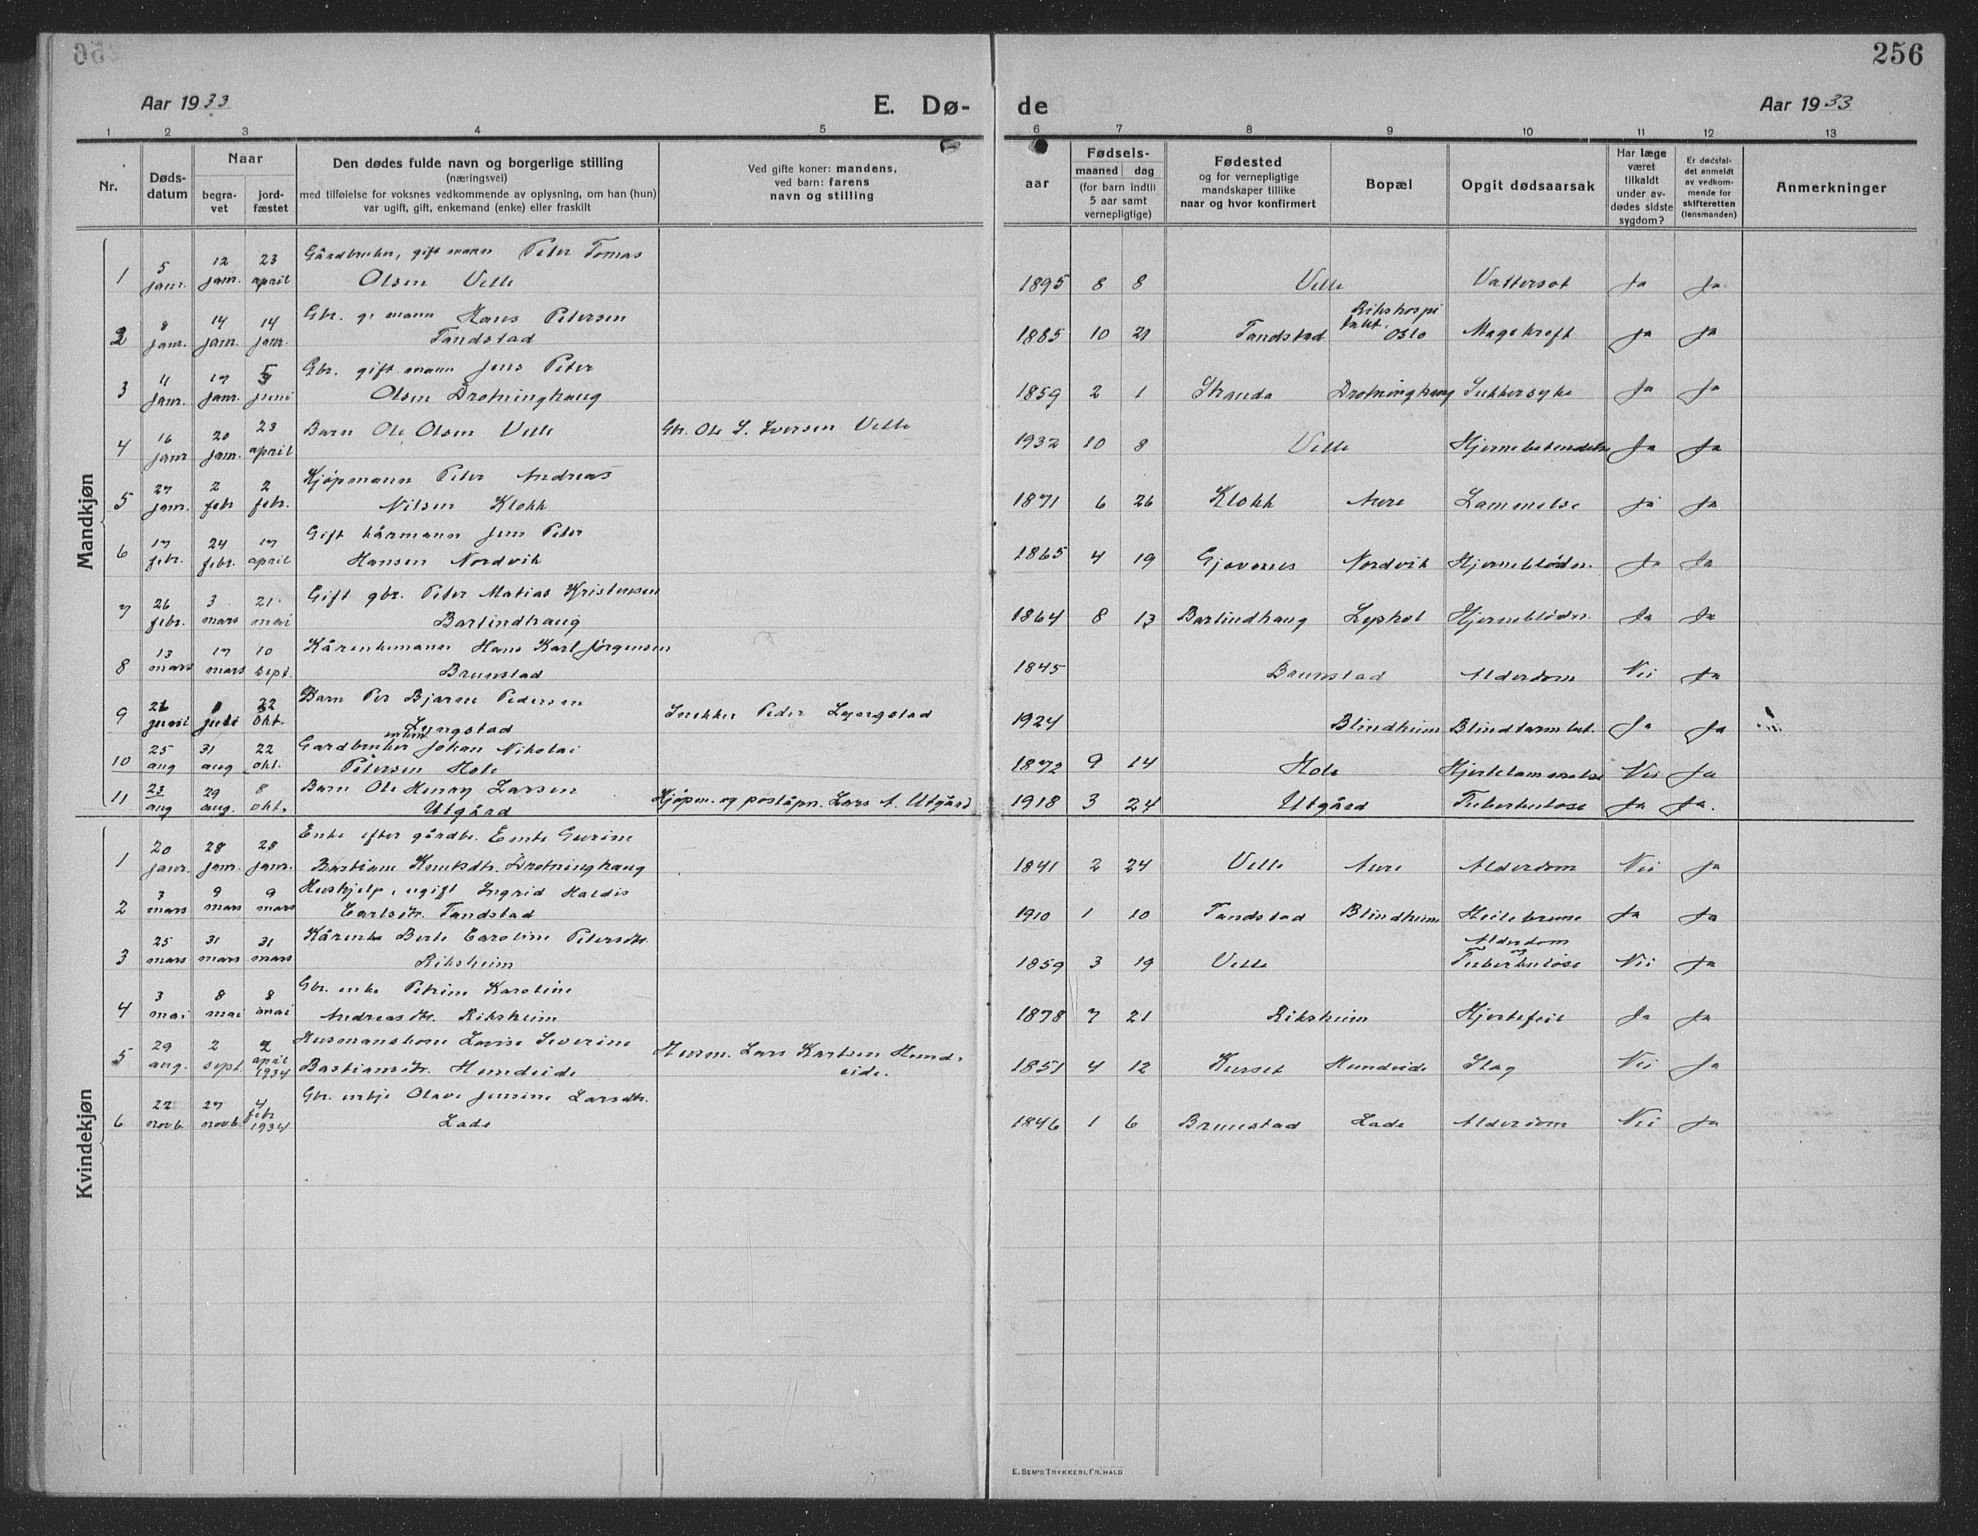 256
Aar 1933
E. Dø-
de
Aar 1933
1 2 3 4 5 6 7 8 9 10 11 12 13
Nr.
Døds-
datum
Naar
begra-
vet
jord-
fæstet
Den dødes fulde navn og borgerlige stilling
(næringsvei)
med tilføielse for voksnes vedkommende av oplysning, om han (hun)
var ugift, gift, enkemand (enke) eller fraskilt
Ved gifte koner: mandens,
ved barn: farens
navn og stilling
aar
Fødsels-
maaned dag
(for barn indtil
5 aar samt
vernepligtige)
Fødested
og for vernepligtige
mandskaper tillike
naar og hvor konfirmert
Bopæl
Opgit dødsaarsak
Har læge
været
tilkaldt
under av-
dødes sidste
sygdom?
Er dødsfal-
det anmeldt
av vedkom-
mende for
skifteretten
(lensmanden)
Anmerkninger
Mandkjøn
1 5 janr. 12 janr. 23 april Gårdbruker, gift mann Peter Tomas
Olsen Velle 1895 8 8 Velle Vattersot Ja Ja
2 8 janr. 14 janr. 14 janr. Gbr. g. mann Hans Petersen
Tandstad 1885 10 21 Tandstad Rikshospi
talet. Oslo Magekreft Ja Ja
3 11 janr. 17 janr. 5 juni Gbr. gift mann Jens Peter
Olsen Drotninghaug 1859 2 1 Stranda Drotninghaug Sukkersyke Ja Ja
4 16 janr 20 janr. 23 april Barn Ole Olsen Velle Gbr. Ole S. Iversen Velle 1932 10 8 Velle Hjernebetendelse Ja Ja
5 27 janr. 2 febr 2 febr. Kjøpmann Peter Andreas
Nilsen Klokk 1871 6 26 Klokk Aure Lammelse Ja Ja
6 17 febr. 24 febr. 17 april Gift kårmann Jens Peter
Hansen Nordvik 1865 4 19 Gjevenes Nordvik Hjerneblødn. Ja Ja
7 26 febr. 3 mars 21 mai Gift gbr. Peter Matias Kristensen
Barlindhaug 1864 8 13 Barlindhaug Lyshol Hjerneblødn. Ja Ja
8 13 mars 17 mars 10 sept. Kårenkemann Hans Karl Jørgensen
Brunstad 1845 Brunstad Alderdom Nei Ja
9 26 juni 1 juli 22 okt. Barn Per Bjarne Pedersen
Lyngstad Snekker Peder Lyngstad 1924 Blindheim Blindtarmbet. Ja Ja
10 25 aug 31 aug 22 okt. Gardbruker enkem. Johan Nikolai
Petersen Hole 1872 9 14 Hole Hjertelammelse Nei Ja
11 23 aug 29 aug. 8 okt. Barn Ole Henry Larsen
Utgård Kjøpm. og poståpn. Lars A. Utgård 1918 3 24 Utgård Tuberkulose Ja Ja.
Kvindekjøn
1 20 janr. 28 janr. 28 janr. Enke efter gårdbr. Emte Gurine
Bastiane Knutsdtr. Drotninghaug 1841 2 24 Velle Aure Alderdom Nei Ja
2 3 mars 9 mars 9 mars Hushjelp, ugift Ingrid Haldis
Carlsdtr. Tandstad 1910 1 10 Tandstad Blindheim Ja Ja
3 25 mars 31 mars 31 mars Kårenke Berte Caroline Petersdtr.
Riksheim 1859 3 19 Velle Alderdom
og
Tuberkulose Nei Ja
4 3 mai 8 mai 8 mai Gbr. enke Petrine Karoline
Andreasdtr. Riksheim 1878 7 21 Riksheim Hjertefeil Ja Ja
5 29 aug. 2 sept. 2 april 1934 Husmanskone Lovise Severine
Bastiansdtr. Hundeide Husm. Lars Karlsen Hund-
eide. 1851 4 12 Kurset Hundeide Slag Nei Ja
6 22 novb. 27 novb. 4 febr 1934 Gbr. enkje Olave Jensine Larsdtr.
Lade 1846 1 6 Brunstad Lade Alderdom Nei Ja
E. SEM'S TRYKKERI, FR.HALD